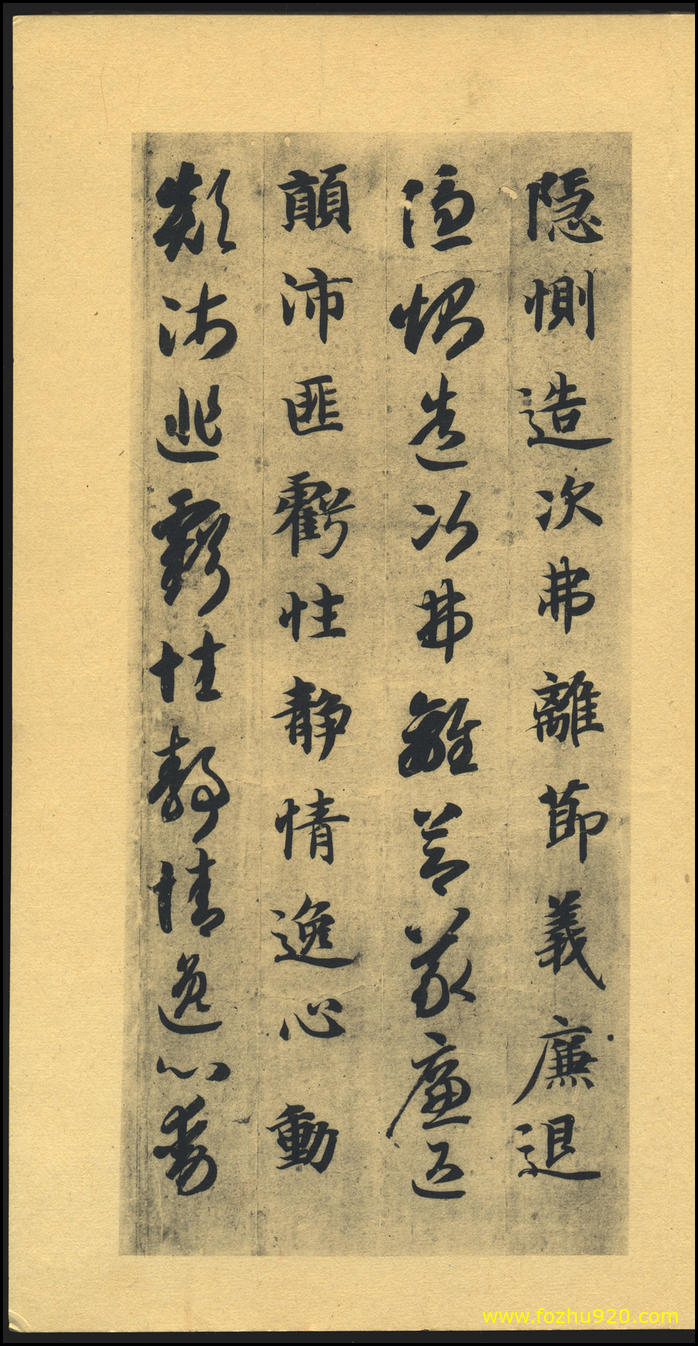 隐惻造次弗離節義廉退
隐惻造次弗離節義廉退
顛沛匪虧性静情逸心動
顛沛匪虧性静情逸心動
www.fozhu920.com